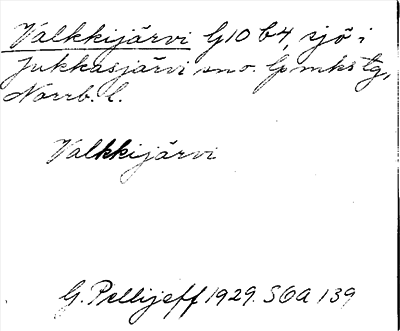 Valkkijärvi G10 b4, sjö i
Jukkasjärvi sn o. lpmkstg,
Norrb. l.
Valkkijärvi
G. Pellijeff 1929. SOA 139